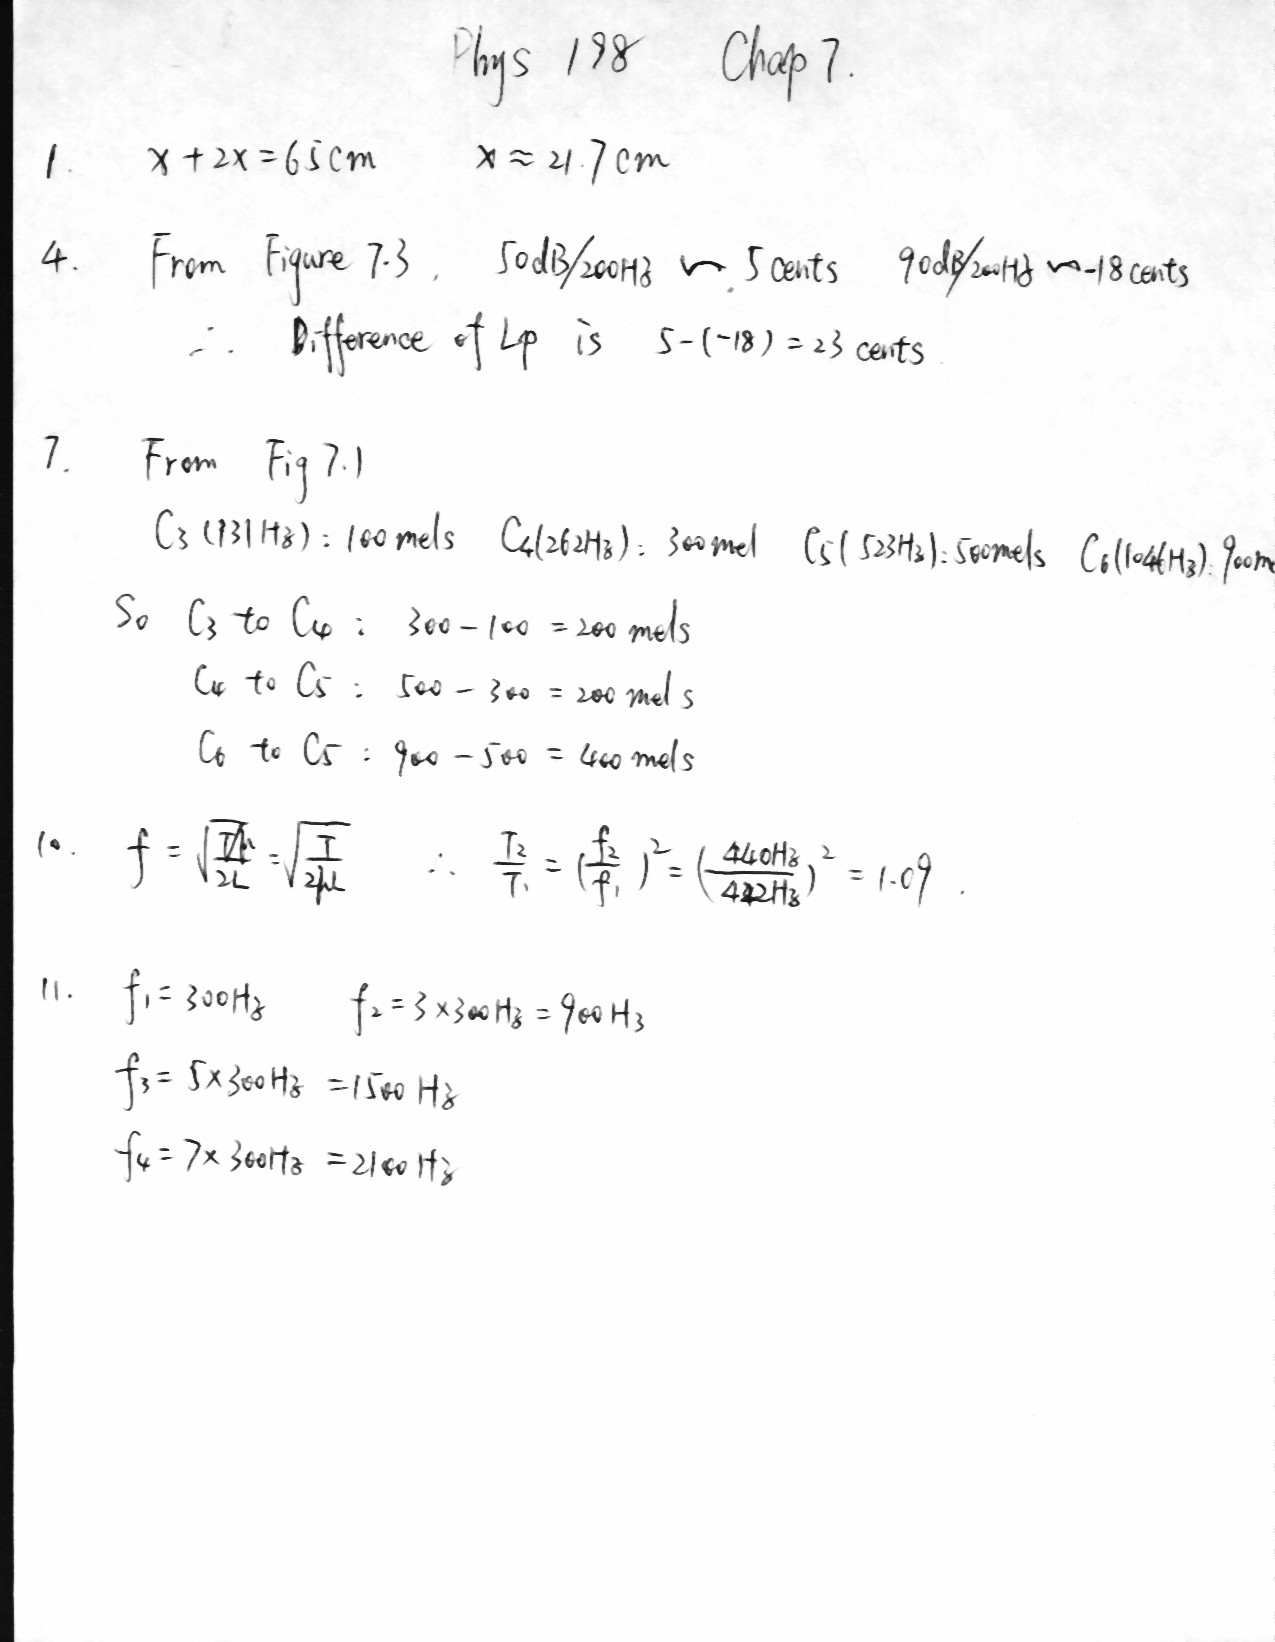 Phys 198 Chap 7.
1. x + 2x = 65cm x ≈ 21.7cm
4. From Figure 7.3, 50dB/200Hz ~ 5 cents 90dB/200Hz ~ -18 cents
∴ Difference of Lp is 5-(-18) = 23 cents
7. From Fig 7.1
C3 (131Hz): 100 mels C4(262Hz): 300 mel C5(523Hz): 500mels C6(1046Hz): 900m
So C3 to C4 : 300 - 100 = 200 mels
C4 to C5 : 500 - 300 = 200 mels
C6 to C5 : 900 - 500 = 400 mels
10. f = √(T/μ)/2L = √(T/2μL) ∴ T2/T1 = (f2/f1)² = (440Hz/422Hz)² = 1.09.
11. f1 = 300Hz f2 = 3×300Hz = 900Hz
f3 = 5×300Hz = 1500 Hz
f4 = 7×300Hz = 2100 Hz